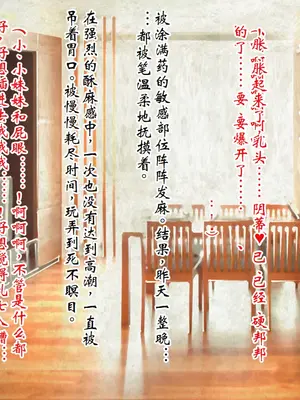 小胀、胀起来了啊，乳头……阴蒂♥已、已经、硬邦邦
的了……要、要爆开了……
被涂满药的敏感部位阵阵发麻。结果，昨天一整晚…
…都被笔温柔地抚摸着。
在强烈的酥麻感中，一次也没有达到高潮，一直被
吊着胃口。被慢慢耗尽时间，玩弄到死不瞑目。
小、小妹妹和屁眼……！啊啊啊，不管是什么都